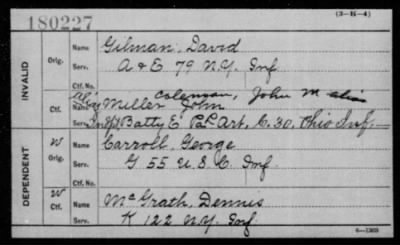 180227 (3-H-4)
INVALID
Orig. Name Gilman, David
Serv. A & E 79 N.Y. Inf
Ctf. No.
Coleman, John M alias
Ctf. Alias Name Miller John
Serv. Batty E Pa L Art, C. 30, Ohio Inf.
DEPENDENT
W Orig. Name Carroll, George
Serv. G 55 U.S.C. Inf.
Ctf. No.
W Ctf. Name McGrath, Dennis
Serv. K 122 N.Y. Inf
6-1303